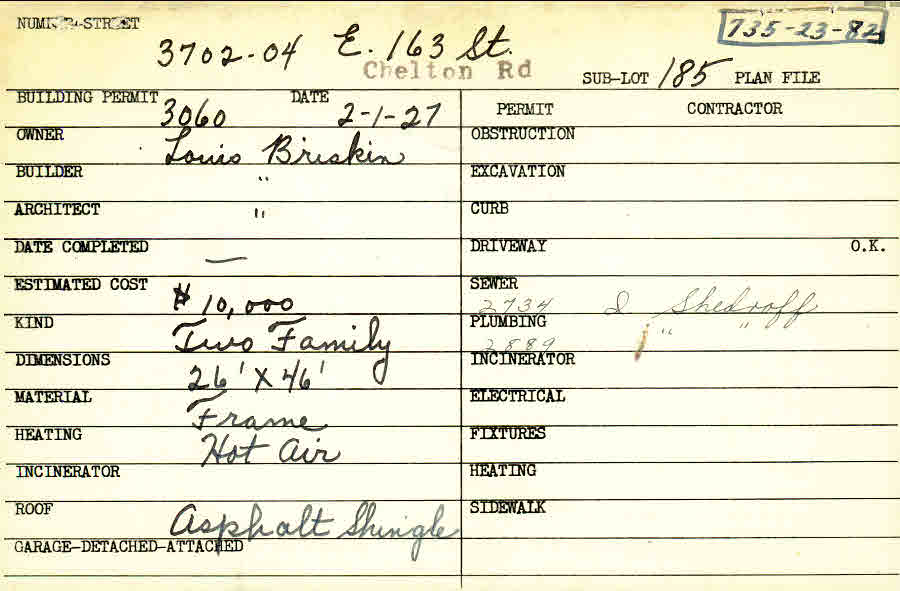 NUMBER-STREET 3702-04 E. 163 St. 735-23-82
Chelton Rd
SUB-LOT 185 PLAN FILE
BUILDING PERMIT 3060 DATE 2-1-27
PERMIT CONTRACTOR
OWNER Louis Briskin
OBSTRUCTION
BUILDER "
EXCAVATION
ARCHITECT "
CURB
DATE COMPLETED —
DRIVEWAY O.K.
ESTIMATED COST $10,000
SEWER 2734 I Shedroff
KIND Two Family
PLUMBING 2889 " "
DIMENSIONS 26' X 46'
INCINERATOR
MATERIAL Frame
ELECTRICAL
HEATING Hot Air
FIXTURES
INCINERATOR
HEATING
ROOF Asphalt Shingle
SIDEWALK
GARAGE-DETACHED-ATTACHED